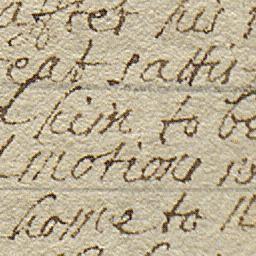 after his
reat sattis
him to be
motions
home to